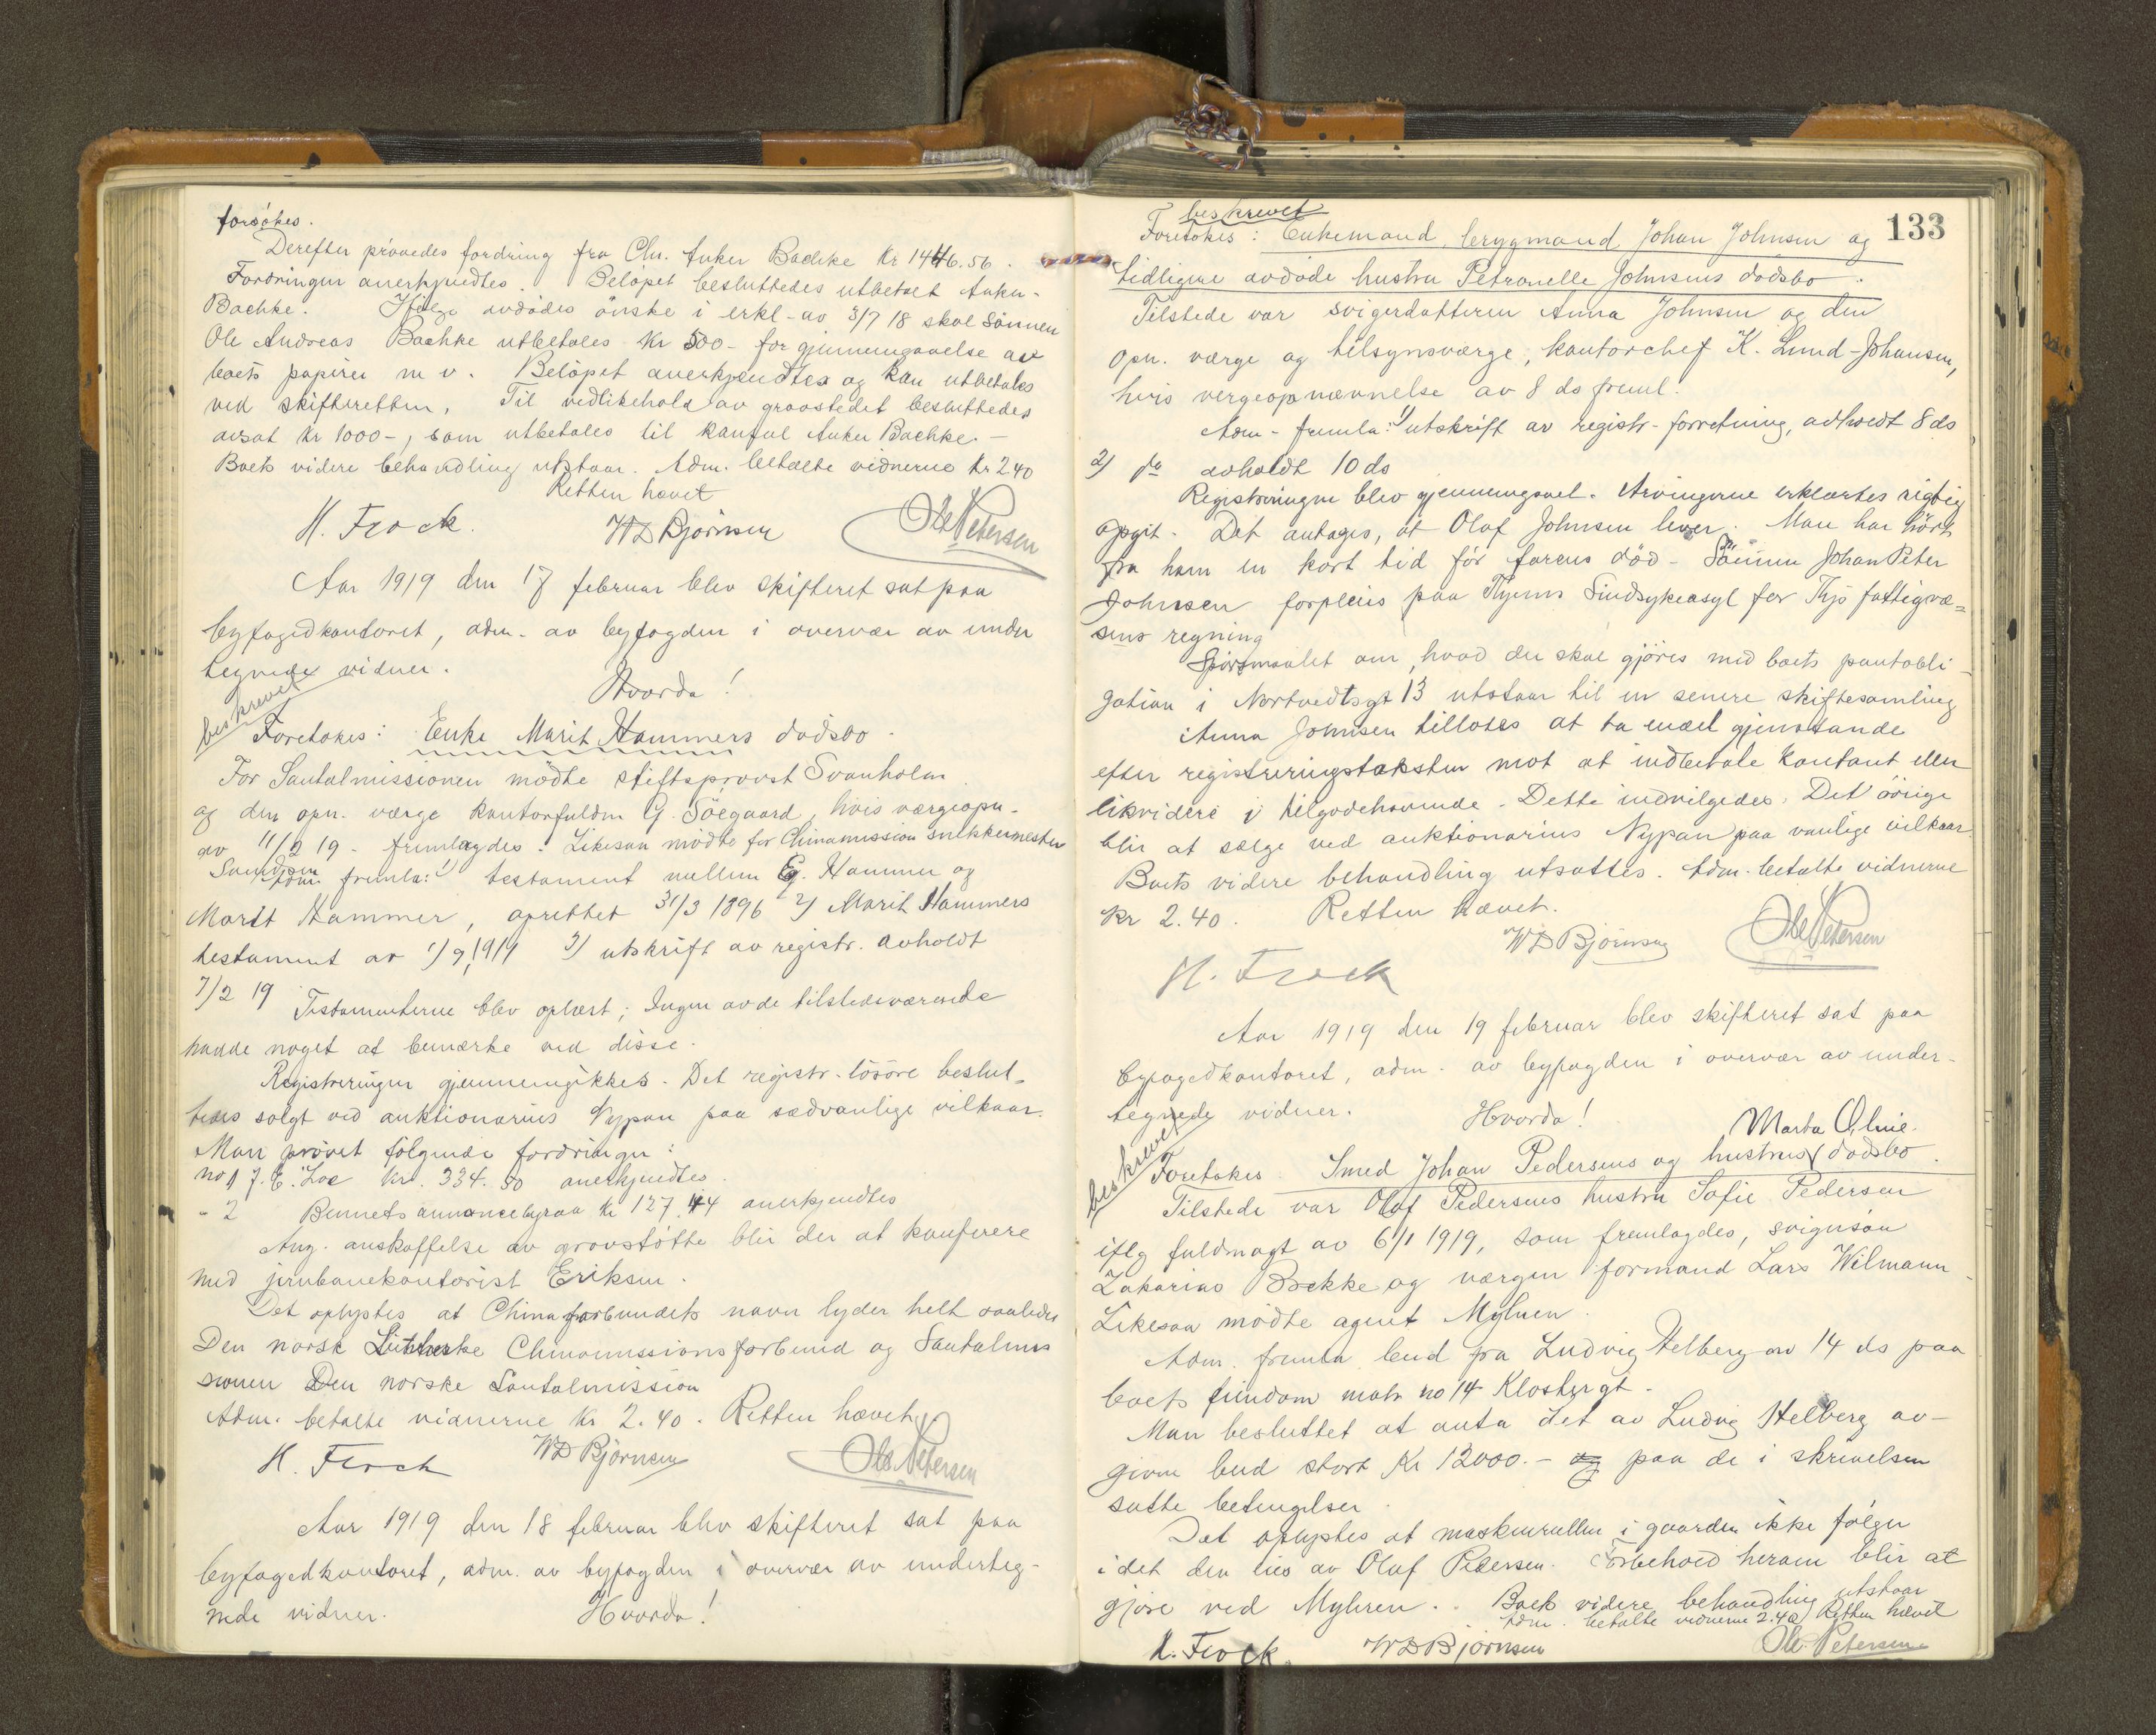 forsøkes.
Derefter prøvedes fordring fra Chr. Anker Bachke Kr 1446.56.
Fordringen anerkjendtes. Beløpet besluttedes utbetalt Anker-
Bachke. Ifølge avdødes ønske i erkl-av 3/7 18 skal sønnen
Ole Andreas Bachke utbetales Kr 500- for gjennemgaaelse av
boets papirer m v. Beløpet anerkjendtes og kan utbetales
ved skifteretten. Til vedlikehold av gravstedet besluttedes
avsat Kr 1000-, som utbetales til Anker Bachke.-
Boets videre behandling utstaar. Adm. betalte vidnerne Kr 2.40
Retten hævet
H. Frock. WD Bjørnsen Ole Petersen
Aar 1919 den 17 februar blev skifteret sat paa
byfogedkontoret, adm. av byfogden i overvær av under
tegnede vidner.
Hvorda!
beskrevet
Foretokes: Enke Marit Hammers dødsbo.
For Santalmissionen mødte stiftsprovst Svanholm
og den opn. værge kontorfuldm G. Söegaard, hvis værgeopn-
av 11/2 19 - fremlagdes. Likesaa mødte for Chinamission snekkermester
Adm. fremla: 1) testament mellem E. Hammer og
Marit Hammer, oprettet 31/3 1896 2) Marit Hammers
testament av 1/9 1911 3) utskrift av registr. avholdt
7/2 19 Testamenterne blev oplæst; Ingen av de tilstedeværende
hadde noget at bemærke ved disse.
Registreringen gjennemgikkes. Det registr. løsøre beslut-
tedes solgt ved auktionarius Nypan paa sædvanlige vilkaar.
Man prøvet følgende fordringer:
no 1 J. E. Loe Kr. 334.50 anerkjendtes.
- 2 Bennets annoncebyraa Kr 127.44 anerkjendtes
Ang. anskaffelse av gravstøtte blir der at konferere
med jernbanekontorist Eriksen.
Det oplystes at Chinaforbundets navn lyder helt saaledes
Den norsk Lutherske Chinamissionsforbund og Santalmis
sionen Den norske Santalmission
Adm. betalte vidnerne Kr 2.40. Retten hævet
H. Frock WD Bjørnsen Ole Petersen
Aar 1919 den 18 februar blev skifteret sat paa
byfogedkontoret, adm. av byfogden i overvær av underteg-
nede vidner. Hvorda!
133
beskrevet
Foretokes: Enkemand brygmand Johan Johnsen og
tidligere avdøde hustru Petronelle Johnsens dødsbo.
Tilstede var svigerdatteren Anna Johnsen og den
opn. værge og tilsynsværge, kontorchef K. Lund-Johansen,
hvis vergeopnævnelse av 8 ds freml.
Adm- fremla: 1) utskrift av registr-forretning, avholdt 8 ds
2) do avholdt 10 ds
Registreringen blev gjennemgaaet. Arvingerne erklærtes rigtig
opgit. Det antages, at Olaf Johnsen lever. Man har hørt
fra ham en kort tid før farens død - Sønnen Johan Peter
Johnsen forpleies paa Sindsykeasyl for fattigvæ=
sens regning
Spørsmaalet om, hvad der skal gjøres med boets pantobli-
gation i 13 utstaar til en senere skiftesamling
Anna Johnsen tillotes at ta endel gjenstande
efter registreringstaksten mot at indbetale kontant eller
likvidere i tilgodehavende. Dette indvilgedes. Det øvrige
blir at sælge ved auktionarius Nypan paa vanlige vilkaar
Boets videre behandling utsattes. Adm. betalte vidnerne
Kr 2.40. Retten hævet.
WD Bjørnsen Ole Petersen
H. Frock
Aar 1919 den 19 februar blev skifteret sat paa
byfogedkontoret, adm. av byfogden i overvær av under-
tegnede vidner. Hvorda!
Marta Oline.
beskrevet
Foretokes Smed Johan Pedersens og hustrus dødsbo.
Tilstede var Olaf Pedersens hustru Sofie Pedersen
iflg fuldmagt av 6/1 1919, som fremlagdes, svigersøn
Zakarias Brekke og værgen formand Lars Wilmann.
Likesaa mødte agent Myhren.
Adm. fremla bud fra Ludvig Helberg av 14 ds paa
boets eiendom matr no 14 Klostergt.
Man besluttet at anta det av Ludvig Helberg av-
givne bud stort Kr 12000.- og paa de i skrivelsen
satte betingelser.
Det oplystes at maskinrullen i gaarden ikke følger
idet den eies av Olaf Pedersen. Forbehold herom blir at
gjøre ved Myhren. Boets videre behandling utstaar
Adm. betalte vidnerne 2.40 Retten hævet
H. Frock. WD Bjørnsen Ole Petersen